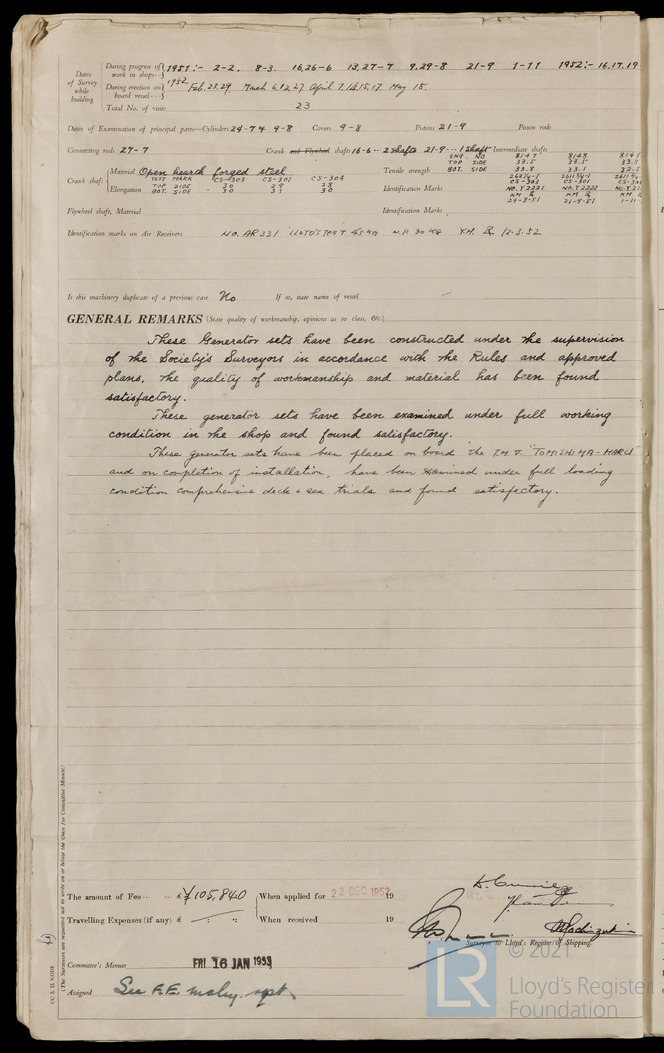 Dates of Survey while building
During progress of work in shops -- 1951:- 2-2. 8-3. 16,26-6 13,27-7 9.29-8 21-9 1-11 1952:- 16.17.19
During erection on board vessel -- 1952 Feb. 23,29, March 6,12,27 April 7.14,15,17 May 15.
Total No. of visits 23
Dates of Examination of principal parts—Cylinders 24-7 & 9-8 Covers 9-8 Pistons 21-9 Piston rods
Connecting rods 27-7 Crank and Flywheel shafts 16-6 -- 2 shafts 21-9 -- 1 shaft Intermediate shafts
Crank shaft Material Open hearth forged steel Tensile strength
SHQ. NO 8147 8148 8149
TOP SIDE 33.5 33.5 33.8
BOT. SIDE 33.8 33.1 32.5
TEST MARK CS-303 CS-301 CS-304
Elongation TOP SIDE - 30 29 28
BOT. SIDE - 30 31 30
Identification Marks
CS-303 CS-301 CS-304
NO. Y2221 NO. Y2222 NO. Y22
29-8-51 21-9-51 1-11-
Flywheel shaft, Material Identification Marks
Identification marks on Air Receivers NO. AR 331 LLOYD'S TEST 45 KG W.P. 30 KG Y.H. 12-3-52
Is this machinery duplicate of a previous case No If so, state name of vessel -
GENERAL REMARKS (State quality of workmanship, opinions as to class, &c.)
These Generator sets have been constructed under the supervision
of the Society's Surveyors in accordance with the Rules and approved
plans, the quality of workmanship and material has been found
satisfactory.
These generator sets have been examined under full working
condition in the shop and found satisfactory.
These generator sets have been placed on board the T.M.V. "TOMISHIMA-MARU"
and on completion of installation, have been examined under full loading
condition comprehensive dock & sea trials and found satisfactory.
The amount of Fee -- £ ¥105,840 When applied for 22 DEC 1952 19
Travelling Expenses (if any) £ - : : When received 19
Surveyor to Lloyd's Register of Shipping.
Committee's Minute FRI 16 JAN 1953
Assigned See F.E. mchy. rpt.
(The Surveyors are requested not to write on or below the space for Committee Minute.)
© 2021
LR
Lloyd's Register
Foundation